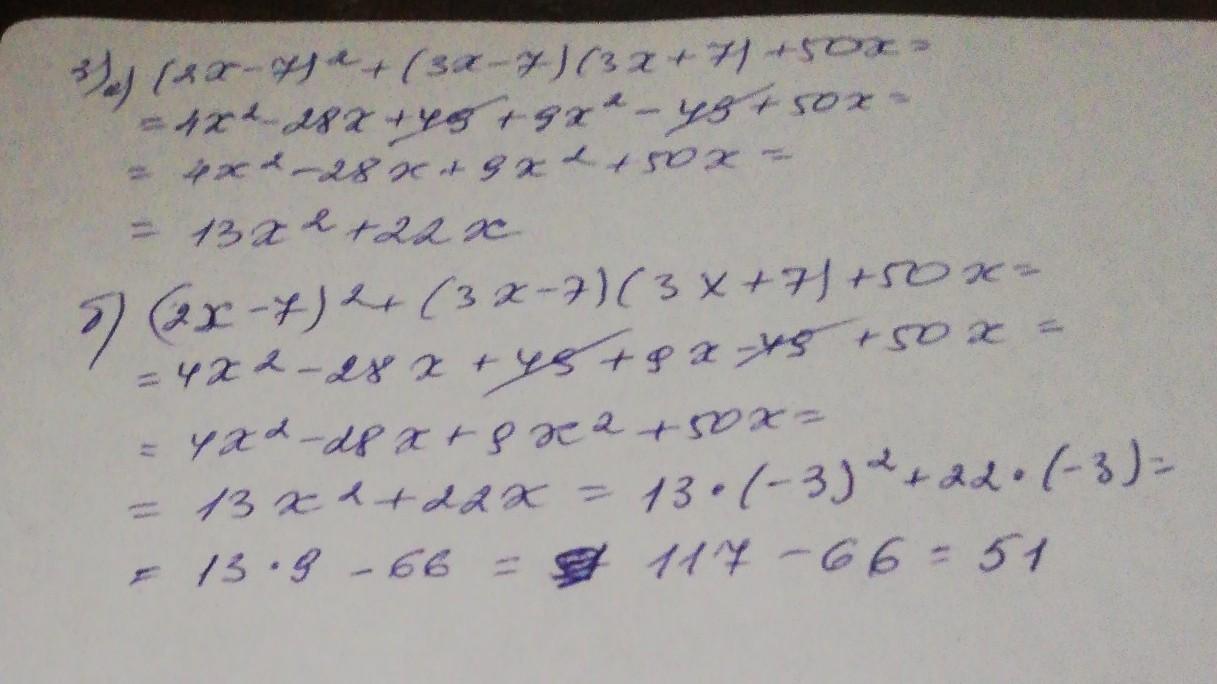 3) а) (2x-7)² + (3x-7)(3x+7) +50x=
=4x²-28x+49+9x²-49+50x=
= 4x²-28x+9x²+50x=
= 13x²+22x
б) (2x-7)²+(3x-7)(3x+7)+50x=
=4x²-28x+49+9x-49+50x=
=4x²-28x+9x²+50x=
= 13x²+22x = 13·(-3)²+22·(-3)=
= 13·9-66 = 117-66=51